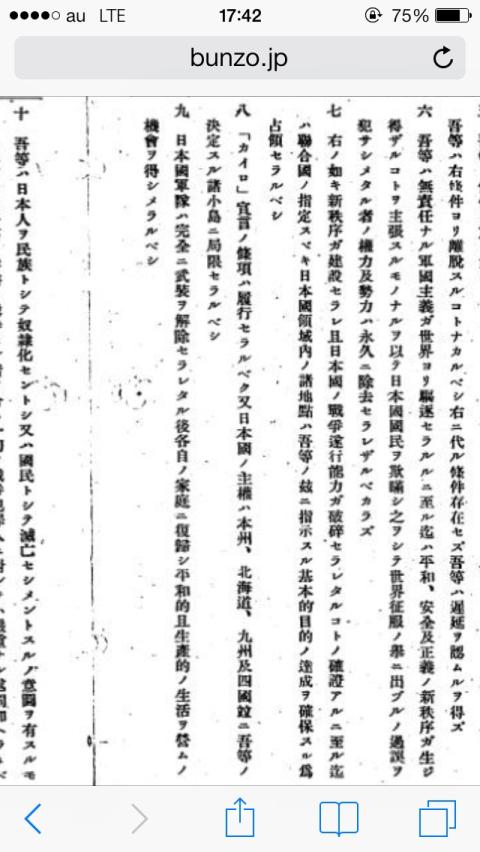 au LTE 17:42 75%
bunzo.jp
吾等ハ右條件ヨリ離脱スルコトナカルベシ右ニ代ル條件存在セズ吾等ハ遲延ヲ認ムルヲ得ズ
六 吾等ハ無責任ナル軍國主義ガ世界ヨリ驅逐セラルルニ至ル迄ハ平和、安全及正義ノ新秩序ガ生ジ
得ザルコトヲ主張スルモノナルヲ以テ日本國國民ヲ欺瞞シ之ヲシテ世界征服ノ擧ニ出ヅルノ過誤ヲ
犯サシメタル者ノ權力及勢力ハ永久ニ除去セラレザルベカラズ
七 右ノ如キ新秩序ガ建設セラレ且日本國ノ戰爭遂行能力ガ破碎セラレタルコトノ確證アルニ至ル迄
ハ聯合國ノ指定スベキ日本國領域内ノ諸地點ハ吾等ノ玆ニ指示スル基本的目的ノ達成ヲ確保スル爲
占領セラルベシ
八 「カイロ」宣言ノ條項ハ履行セラルベク又日本國ノ主權ハ本州、北海道、九州及四國竝ニ吾等ノ
決定スル諸小島ニ局限セラルベシ
九 日本國軍隊ハ完全ニ武裝ヲ解除セラレタル後各自ノ家庭ニ復歸シ平和的且生產的ノ生活ヲ營ムノ
機會ヲ得シメラルベシ
十 吾等ハ日本人ヲ民族トシテ奴隷化セントシ又ハ國民トシテ滅亡セシメントスルノ意圖ヲ有スルモ